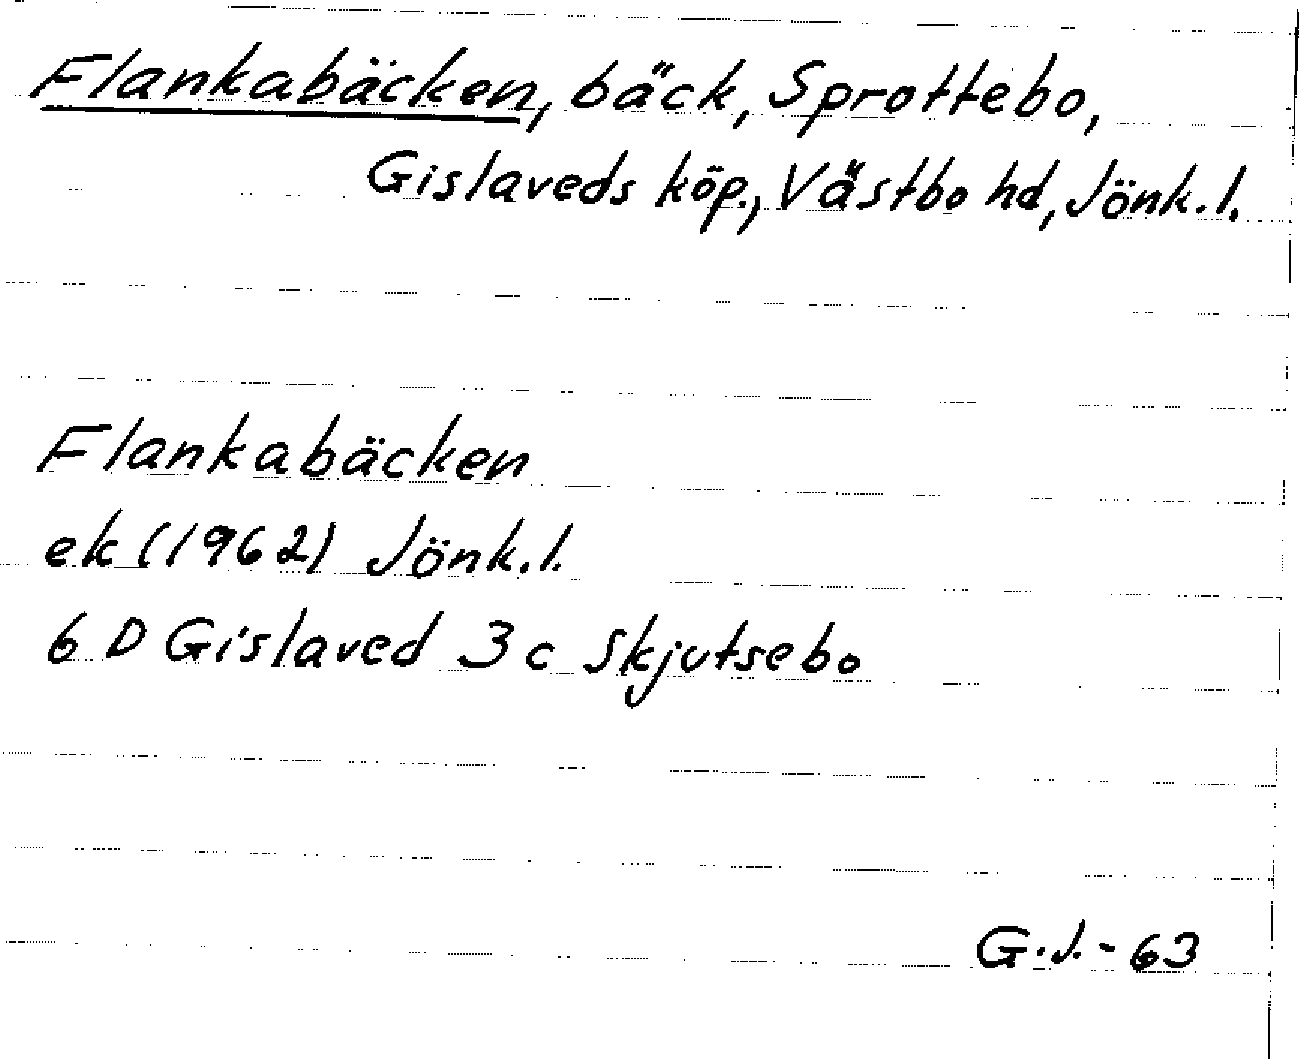 Flankabäcken, bäck, Sprottebo,
Gislaveds köp., Västbo hd, Jönk.l.
Flankabäcken
ek (1962) Jönk.l.
6 D Gislaved 3 c Skjutsebo
G.J.-63